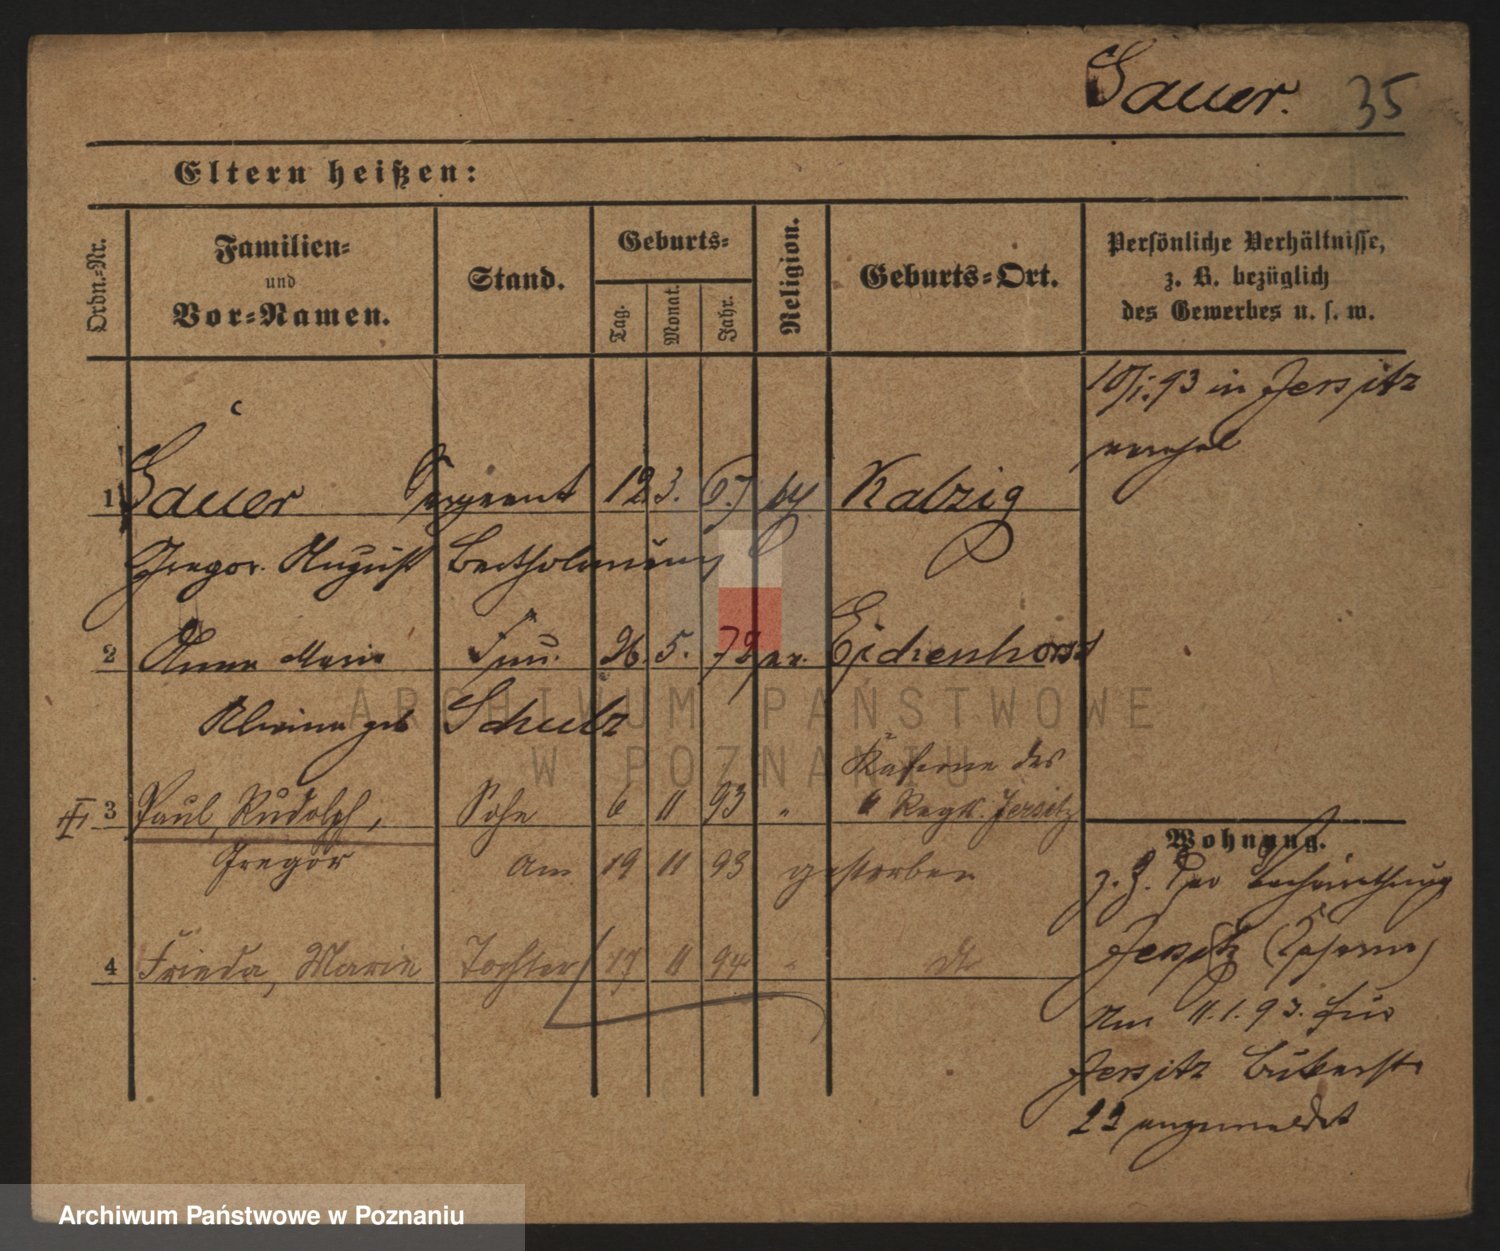 Sauer. 35
Eltern heißen:
Ordn.-Nr.
Familien-
und
Vor-Namen.
Stand.
Geburts-
Tag.
Monat.
Jahr.
Religion.
Geburts-Ort.
Persönliche Verhältnisse,
z. B. bezüglich
des Gewerbes u. s. w.
10/1.93 in Jersitz
verehel
1 Sauer Sergeant 12 3. 67 Kalzig
Gregor August Bartholomäus
2 Anna Marie Frau. 26. 5. 72 ev. Eichenhorst
geb Schulz
Kaserne des
II 3 Paul, Rudolph, Sohn 6 11 93 " 6 Regts. Jersitz
Gregor am 19 11 93 gestorben
4 Frieda, Marie Tochter 17 11 94 " do
Wohnung.
z. Z. der Verheirathung
Jersitz (Kaserne)
Am 11.1.93. für
Jersitz
22 angemeldet
ARCHIWUM PAŃSTWOWE
W POZNANIU
Archiwum Państwowe w Poznaniu